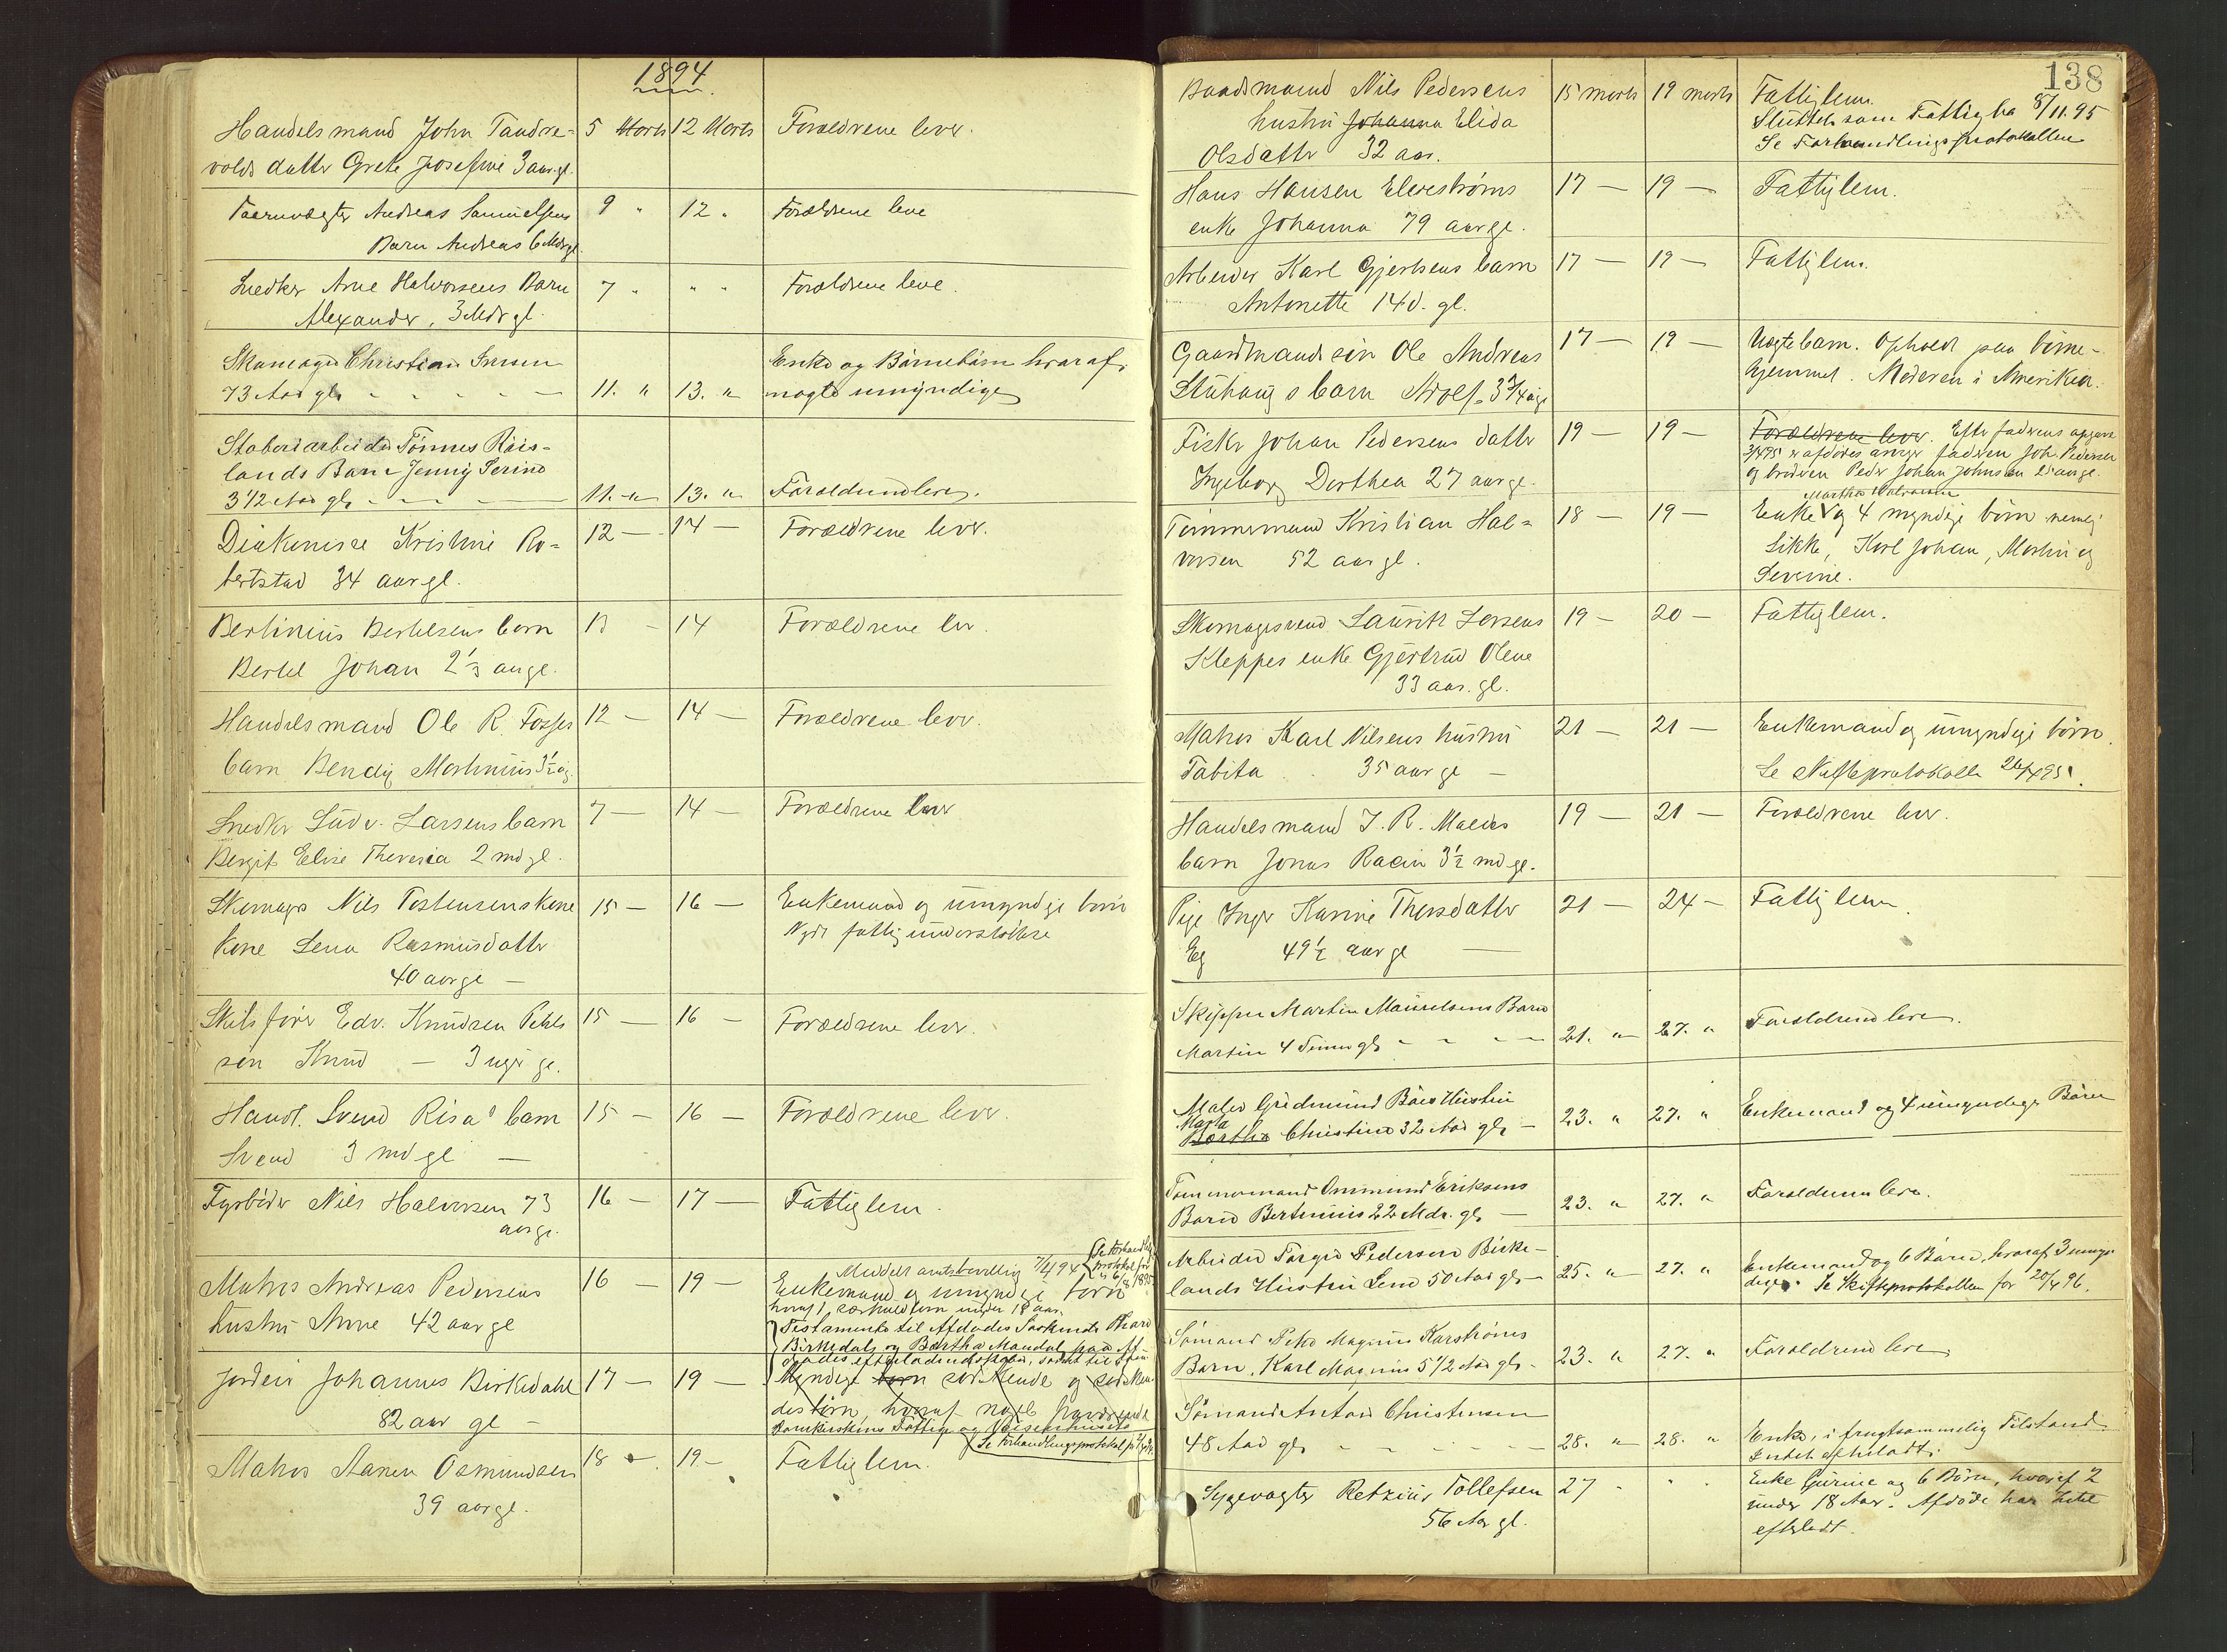 1894
Handelsmand John Tandre- 5 Marts 12 Marts Forældrene lever.
volds datter Grete Josefine 3 aar gl.
Taarnvægter Andreas Samuelsens 9 " 12 " Forældrene leve
Barn Andreas 6 Mdr gl
Snedker Arne Halvorsens Barn 7 " " " Forældrene leve.
Alexander, 3 Mdr gl.
Skomager Christian 
73 Aar gl. 11. " 13. " Enke og Børnebørn hvoraf
nogle umyndige
Støberiarbeider Tønnes Riis-
lands Barn Jenny Serine
3 1/2 Aar gl. 11. " 13. " Forældrene lever.
Diakonisse Kristine Ro- 12 — 14 — Forældrene lever.
bertstad 34 aar gl.
Bertinius Bertelsens barn 13 — 14 Forældrene lever.
Bertel Johan 2 1/3 aar gl.
Handelsmand Ole R. Fosses 12 — 14 — Forældrene lever.
barn Bendig Martinius 3 1/2 aar
Snedker Ludv. Larsens barn 7 — 14 — Forældrene lever
Bergit Elise Theresia 2 md gl.
Skomager Nils Tostensens kone 15 — 16 — Enkemand og umyndige børn
kone Lena Rasmusdatter Nyder fattigunderstøttelse
40 aar gl —
Skibsfører Edv. Knudsen Pehls 15 — 16 — Forældrene lever.
søn Knud — 3 uger gl.
Handl. Svend Risa's barn 15 — 16 — Forældrene lever.
Svend 3 md gl —
Fyrbøder Nils Halvorsen 73 16 — 17 — Fattiglem.
aar gl.
Se Forhandlings
protokol for
6/8 1895
Meddelt amtsbevilling 7/4 94
Matros Andreas Pedersens 16 — 19 — Enkemand og umyndige børn
hustru Anne 42 aar gl hvoraf 1 særkuldbørn under 18 aar.
Testamente til Afdødes Søskende
Birkedals og Bertha Mandal paa Af-
dødes efterladenskaber, samt til
Jordein Johannes Birkedahl 17 — 19 — Myndige børn søskende og søsken-
82 aar gl — desbørn, hvoraf nogle fraværende
Domkirkens Fattige og Vaisenhuset
Se Forhandlingsprotokol
Matros Aanen Osmundsen 18 — 19 — Fattiglem.
39 aar gl.
138
Baadsmand Nils Pedersens 15 marts 19 marts Fattiglem.
hustru Johanna Elida Sluttet som Fattigbo 8/11.95
Olsdatter 32 aar. Se Forhandlingsprotokollen
Hans Hansen Elvestrøms 17 — 19 — Fattiglem.
enke Johanna 79 aar gl.
Arbeider Karl Gjertsens barn 17 — 19 — Fattiglem.
Antonette 14 d. gl.
Gaardmandssøn Ole Andreas 17 — 19 — Uægte barn. Ophold paa børne-
Stuhaugs barn Adolf 3 3/4 aar gl hjemmet. Moderen i Amerika.
Fisker Johan Pedersens datter 19 — 19 — Forældrene lever. Efter fadrens opgave
Ingeborg Dorthea 27 aar gl. 3/4 95 er afdødes arvinger faderen Joh. Pedersen
og broderen Peder Johan Johnsen 21 aar gl.
Martha Halvorsen
Tømmermand Kristian Hal- 18 — 19 — Enke og 4 myndige børn nemlig
vorsen 52 aar gl. Sikke, Karl Johan, Martin og
Severine.
Skomagersvend Lauritz Larsens 19 — 20 — Fattiglem.
Kleppes enke Gjertrud Olene
33 aar. gl.
Matros Karl Nilsens hustru 21 — 21 — Enkemand og umyndige børn.
Tabita 35 aar gl — Se Skifteprotokollen 26/4 95.
Handelsmand J. R. Maeles 19 — 21 — Forældrene lever.
barn Jonas Racin 3 1/2 md gl.
Pige Inger Karine Thorsdatter 21 — 24 — Fattiglem.
Eg 49 1/2 aar gl —
Skipper Martin Mauritsens Barn
Martin 4 Timer gl. 21. " 27. " Forældrene lever.
Maler Gudmund Bøes Hustru
Maria
Bertha Christine 32 Aar gl. — 23. " 27. " Enkemand og 4 umyndige Børn
Tømmermand Ommund Eriksens
Barn Bertinius 22 Mdr. gl. — 23. " 27. " Forældrene lever.
Arbeider Torger Pedersen Birke-
lands Hustru Lene 50 Aar gl. — 25. " 27. " Enkemand og 6 Børn, hvoraf 3 umyn-
dige. Se Skifteprotokollen for 20/4 96.
Sømand Peter Magnus Karstrøms
Barn, Karl Magnus 5 1/2 Aar gl. 23. " 27. " Forældrene lever
Sømand Anton Christensen
48 Aar gl. 28. " 28. " Enke, i frugtsommelig Tilstand
Intet efterladt.
Sygevogter Retzius Tollefsen 27 " " Enke Gurine og 6 Børn, hvoraf 2
56 Aar gl. under 18 Aar. Afdøde har Intet
efterladt.